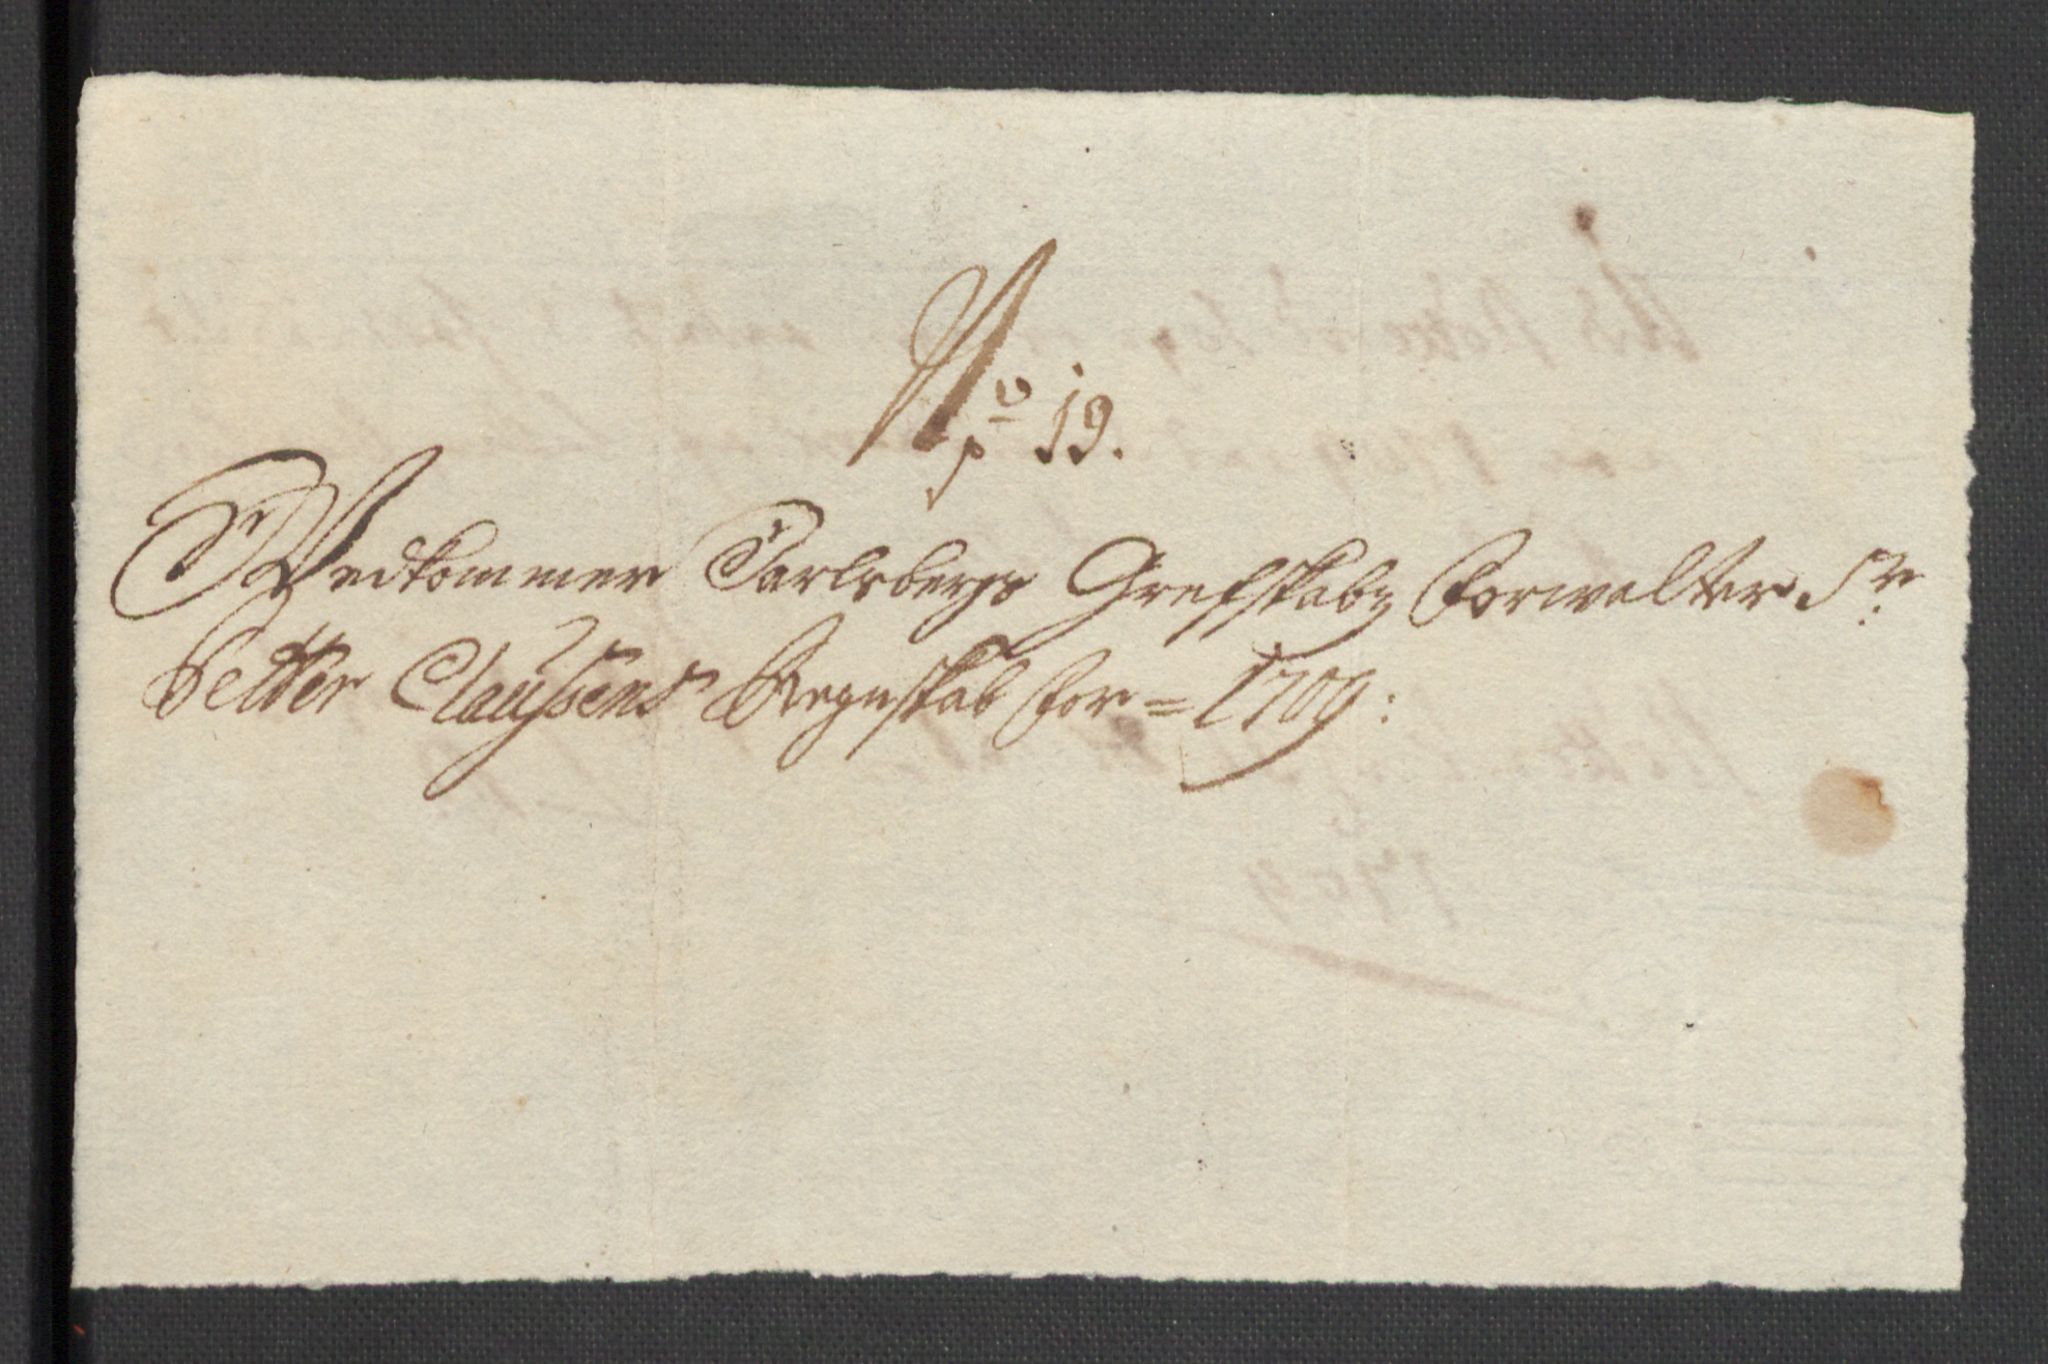 No 19.
Wedkommer Jarlsbergs Grefskabs Forwalter Sr:
Petter Claussens Regnskab for = 1709: